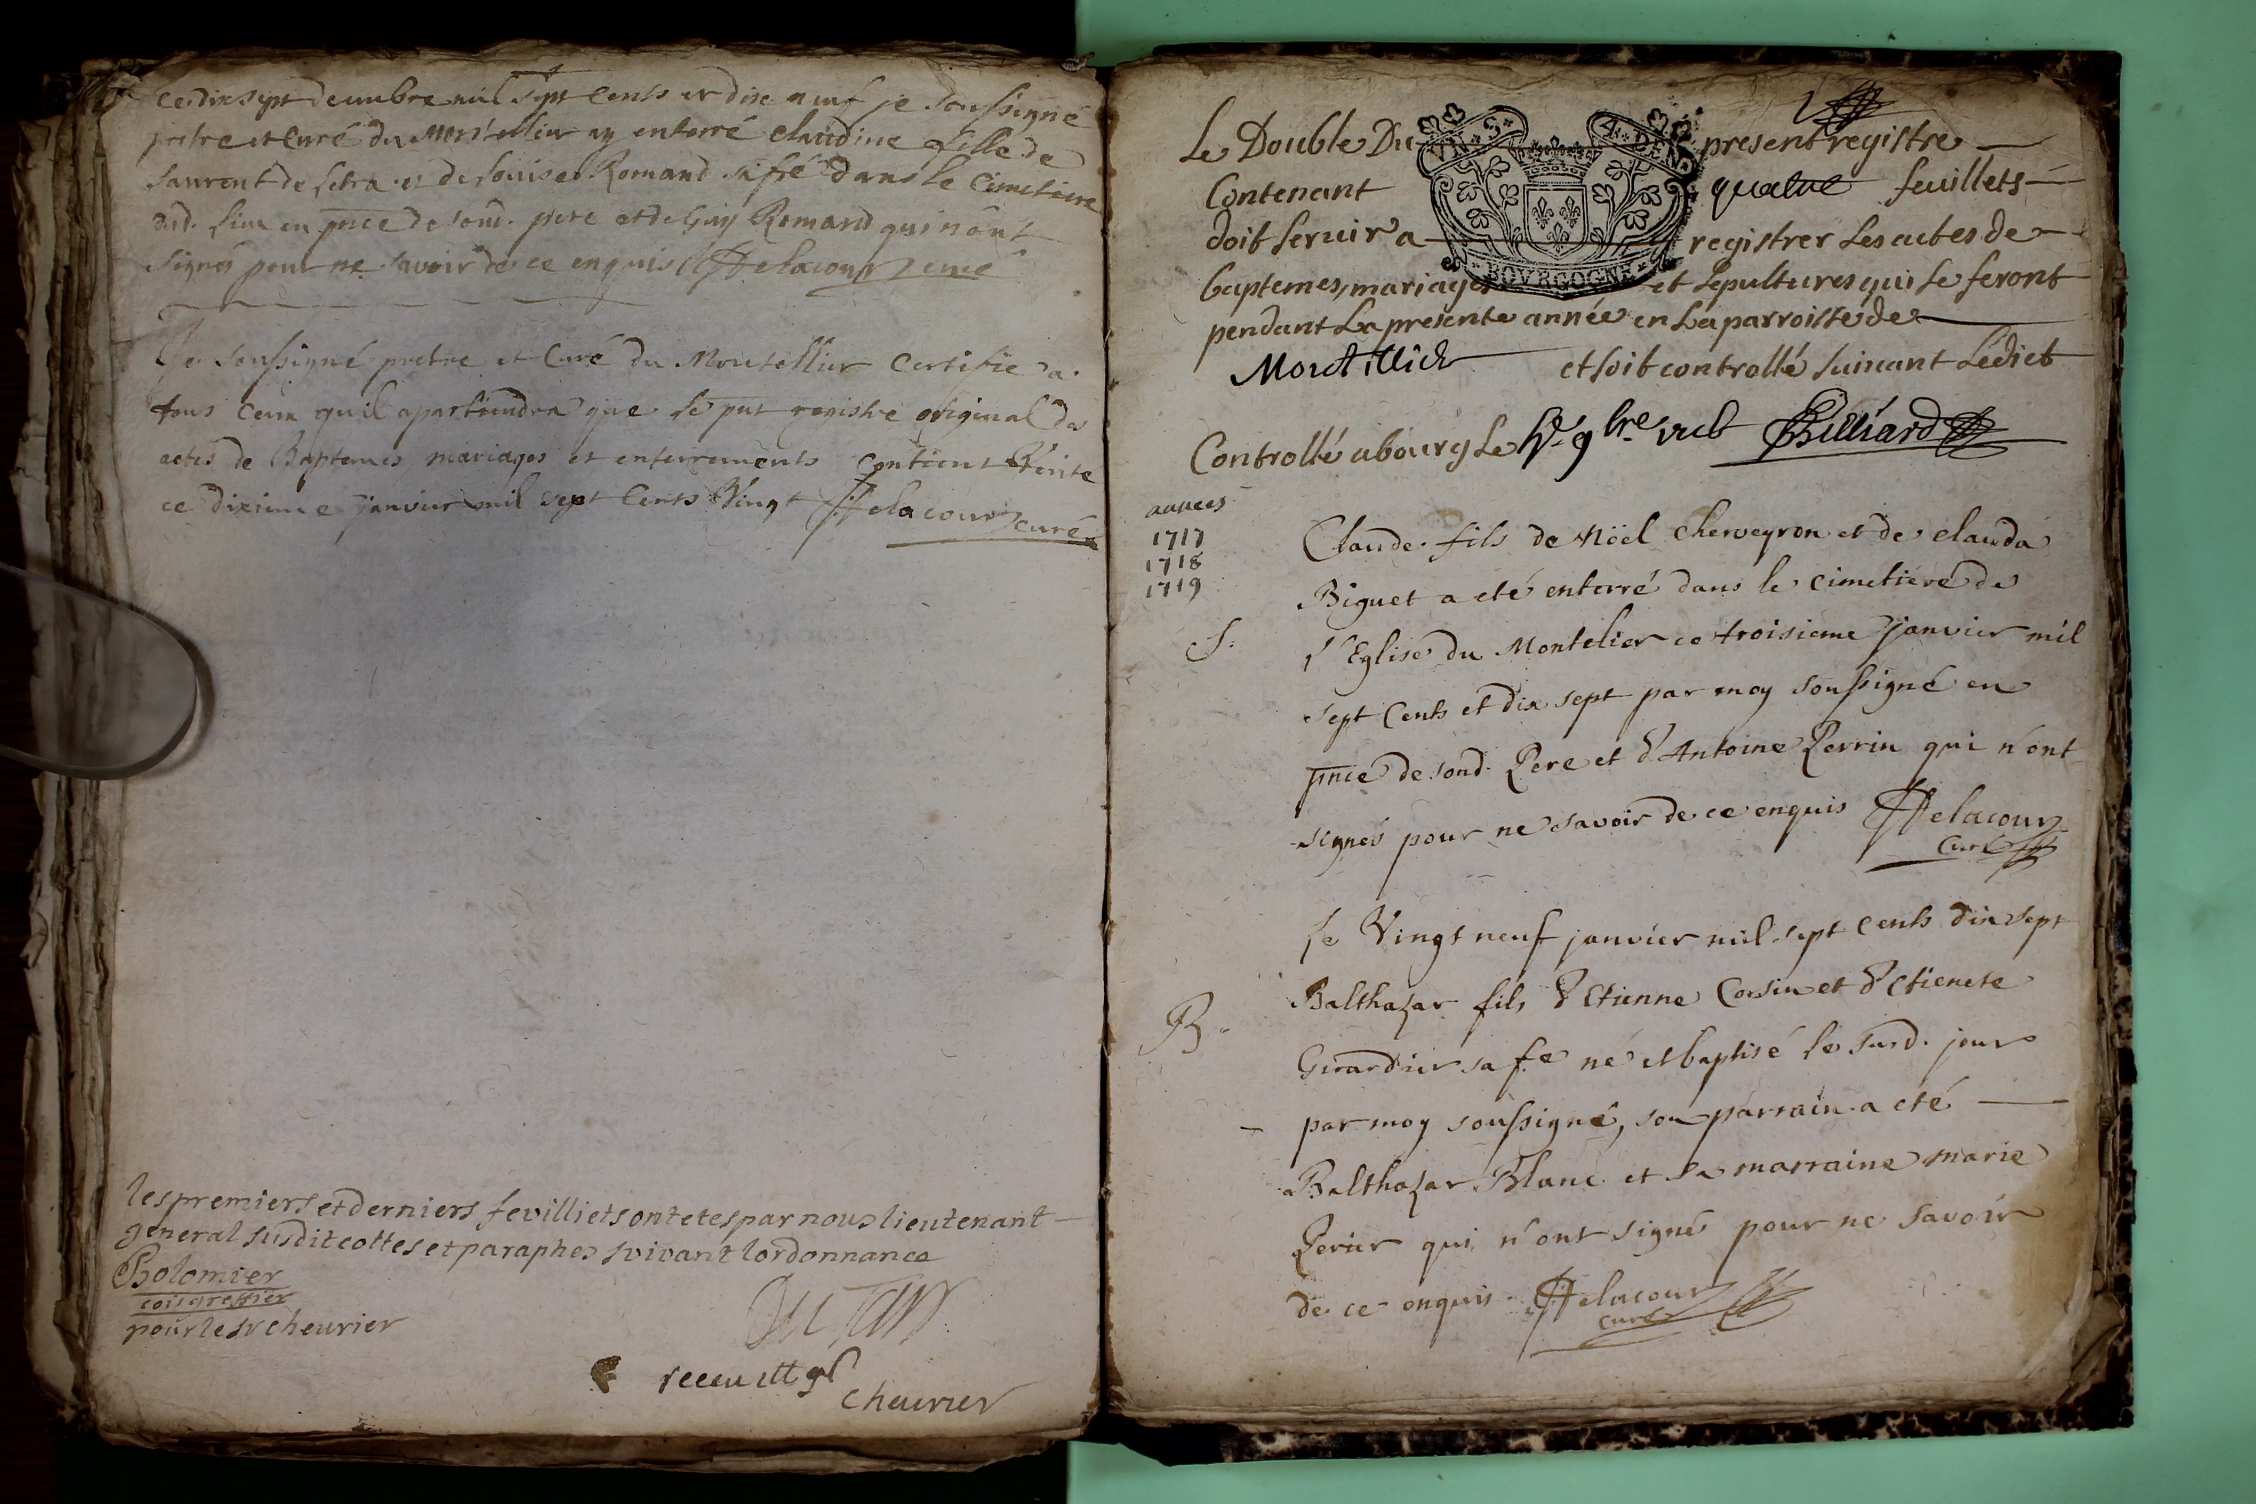 ce dix sept decembre mil sept cents et dix neuf je soussigné
pretre et curé du Montellier ay enterré claudine fille de
Laurent de Letra et de Louise Romand sa fe dans le cimetiere
dud. lieu en pnce de sond. pere et de Guy Romand qui n'ont
signés pour ne savoir de ce enquis Delacour curé
Je soussigné pretre et Curé du Montellier Certifie a
tous Ceux quil apartiendra que le pnt registre original des
actes de Baptemes mariages et enterrements contient Verité
ce dixieme janvier mil sept Cents Vingt Delacour curé
les premiers et derniers feuilliets ont etes par nous lieutenant
general susdit cottes et paraphes suivant lordonnance
Bolomier
cois greffier
pour le sr cheurier
receu
cheurier
Le Double Du present registre
Contenant quatre feuillets
doit servir a registrer Les actes de
baptemes, mariages et sepultures qui se feront
pendant La presente année en La parroisse de
Montellier et soit controllé suivant Lédict
Controllé a bourg Le 9bre Billiard
VN S 4 DEN
BOVRGOGNE
années
1717
1718
1719
Claude fils de Nöel Cherveyron et de clauda
Biguet a eté enterré dans le cimetiere de
S.
l'Eglise du Montelier ce troisieme janvier mil
sept Cents et dix sept par moy soussigné en
pnce de sond. Pere et d'Antoine Perrin qui n'ont
signés pour ne savoir de ce enquis Delacour
Curé
Le Vingt neuf janvier mil sept cents dix sept
Balthazar fils d'Etienne Corsin et d'Etienete
B.
Girardier sa fe né et baptisé le susd. jour
par moy soussigné, son parrain a eté
Balthazar Blanc et sa marraine marie
Perier qui n'ont signés pour ne savoir
de ce enquis Delacour
curé